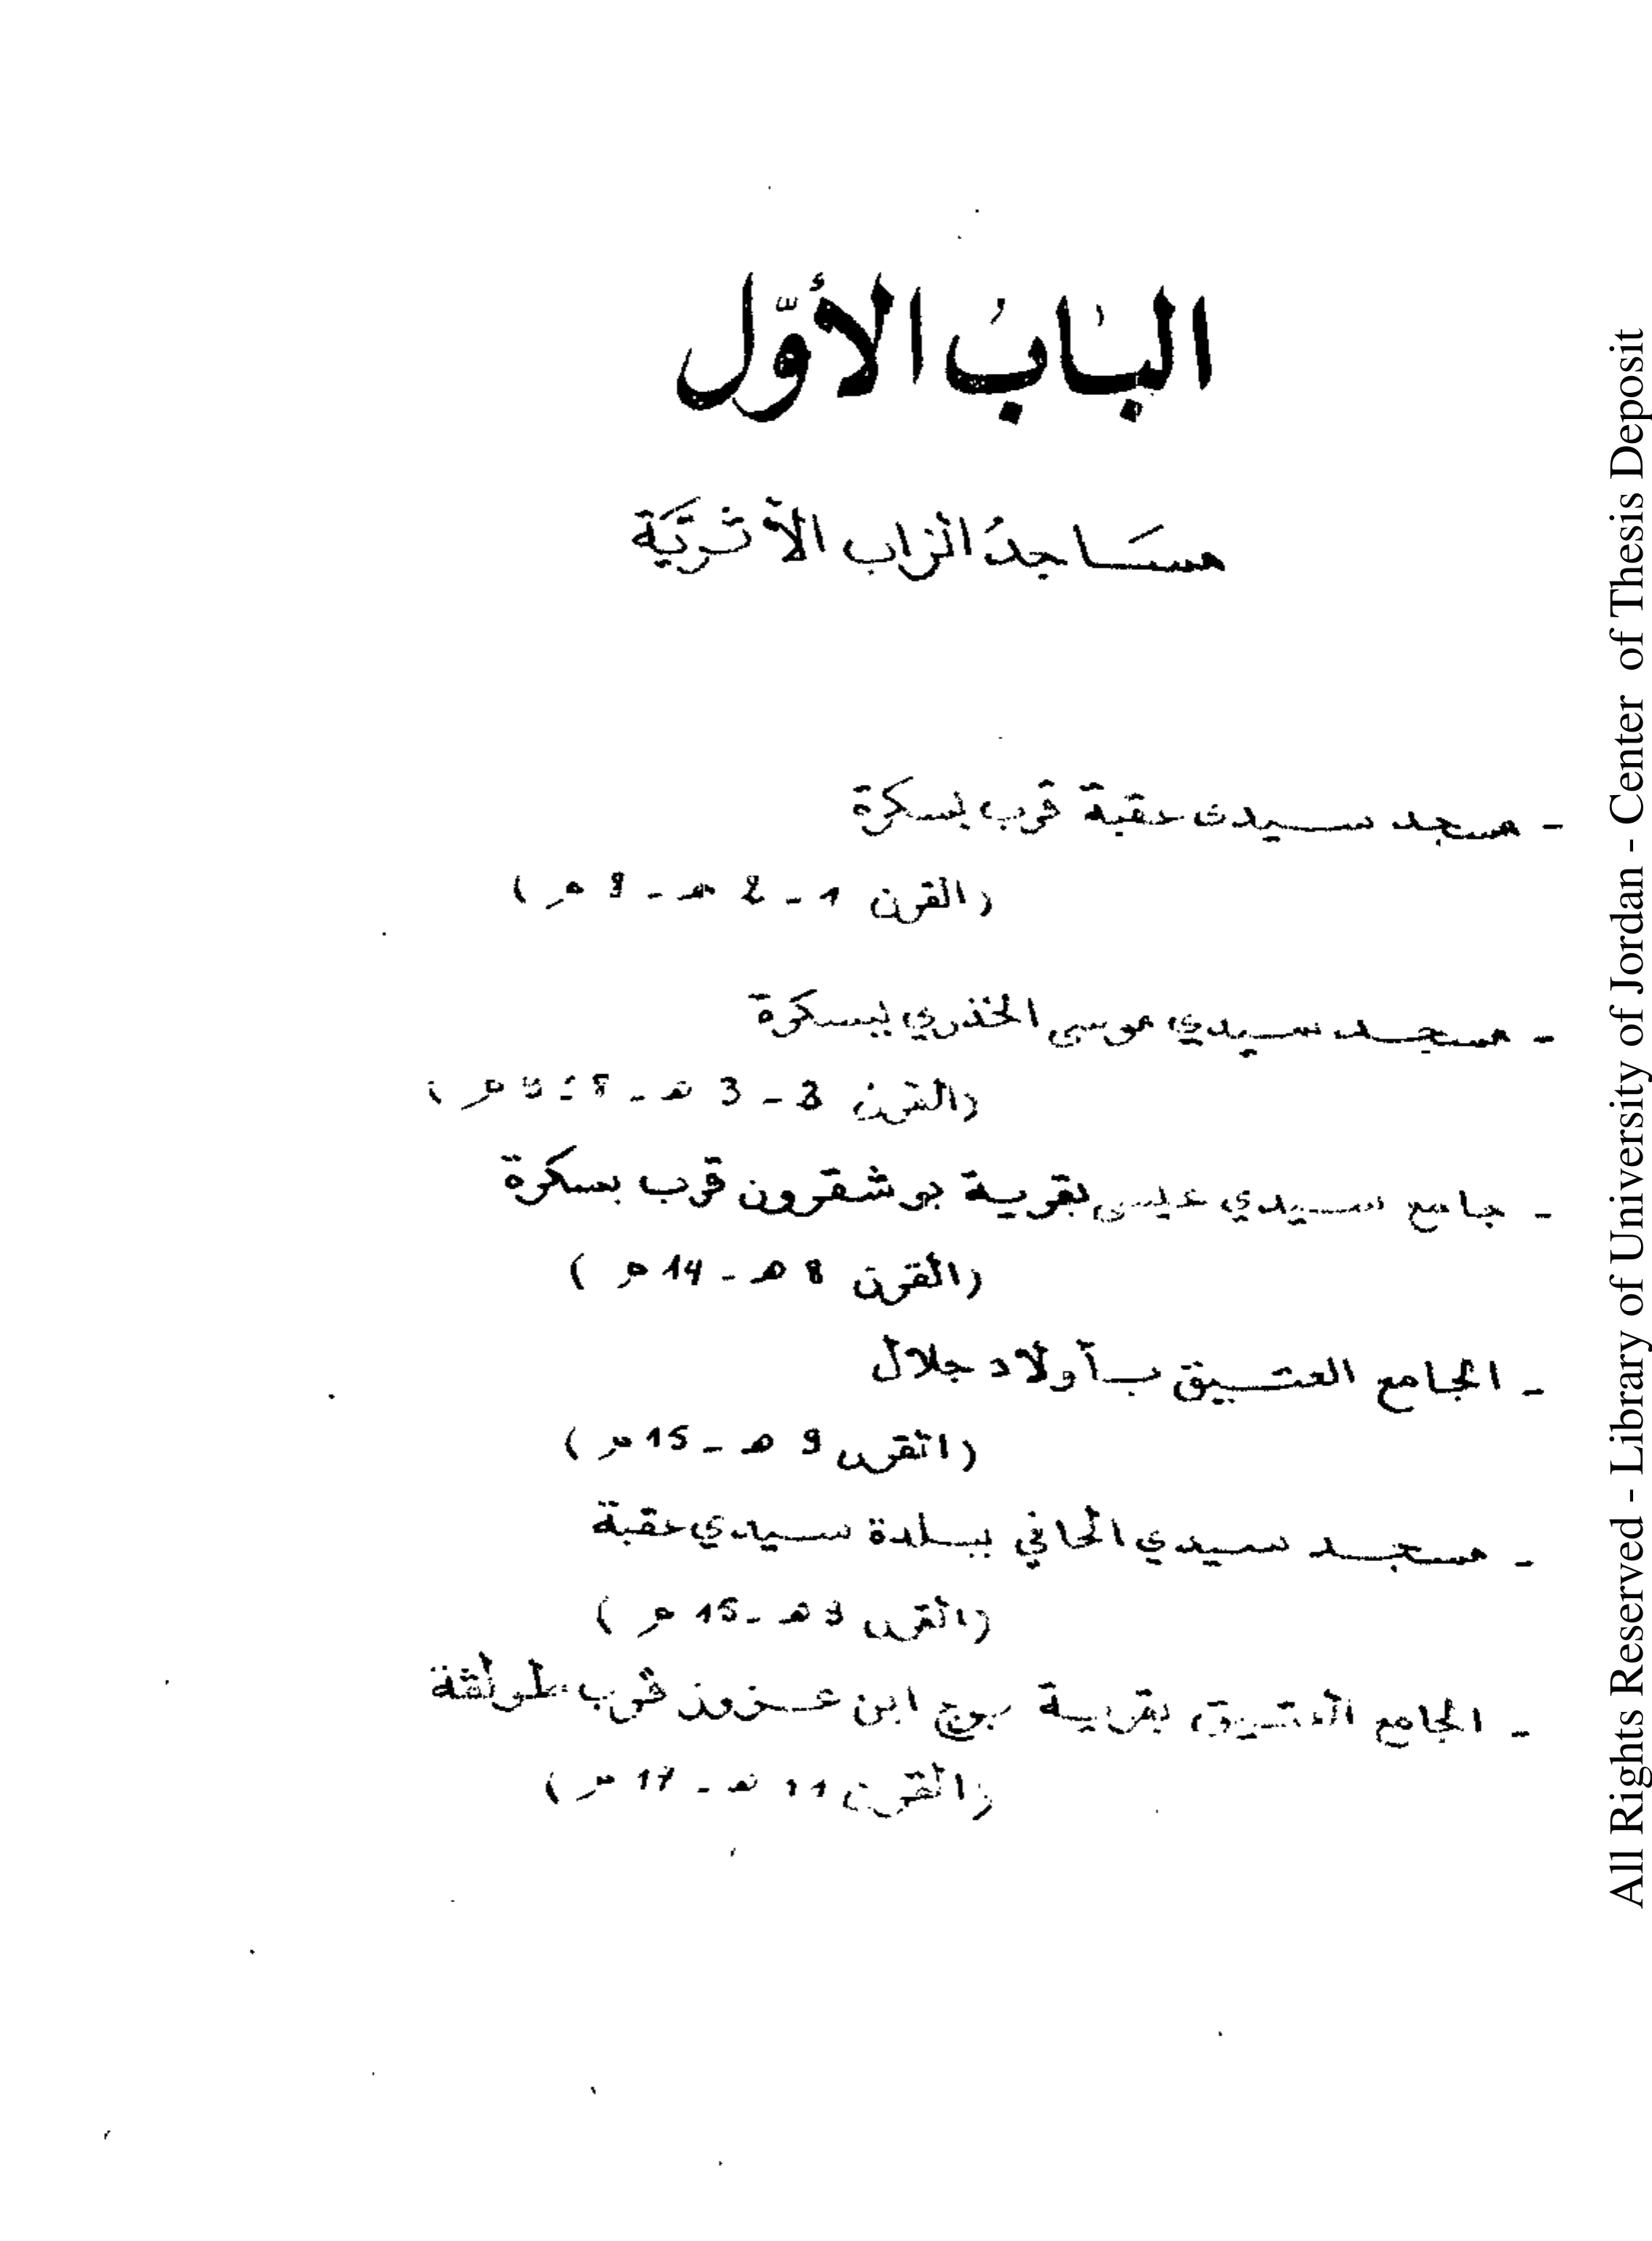 الباب الأوّل
مسَاجدُ الزاب الأثريَّة
- مسجد سيدي عقبة قرب بسكرة
(القرن 1 - 2 هـ - 8 م)
- مسجد سيدي موسى الخذري ببسكرة
(القرن 3 هـ - م)
- جامع سيدي عيسى بقرية بوشقرون قرب بسكرة
(القرن 8 هـ - 14 م)
- الجامع العتيق بـأولاد جلال
(القرن 9 هـ - 15 م)
- مسجد سيدي الحافي ببلدة سيدي عقبة
(القرن 9 هـ - 15 م)
- الجامع العتيق بقرية برج ابن عزوز قرب طولقة
(القرن 11 هـ - 17 م)
All Rights Reserved - Library of University of Jordan - Center of Thesis Deposit